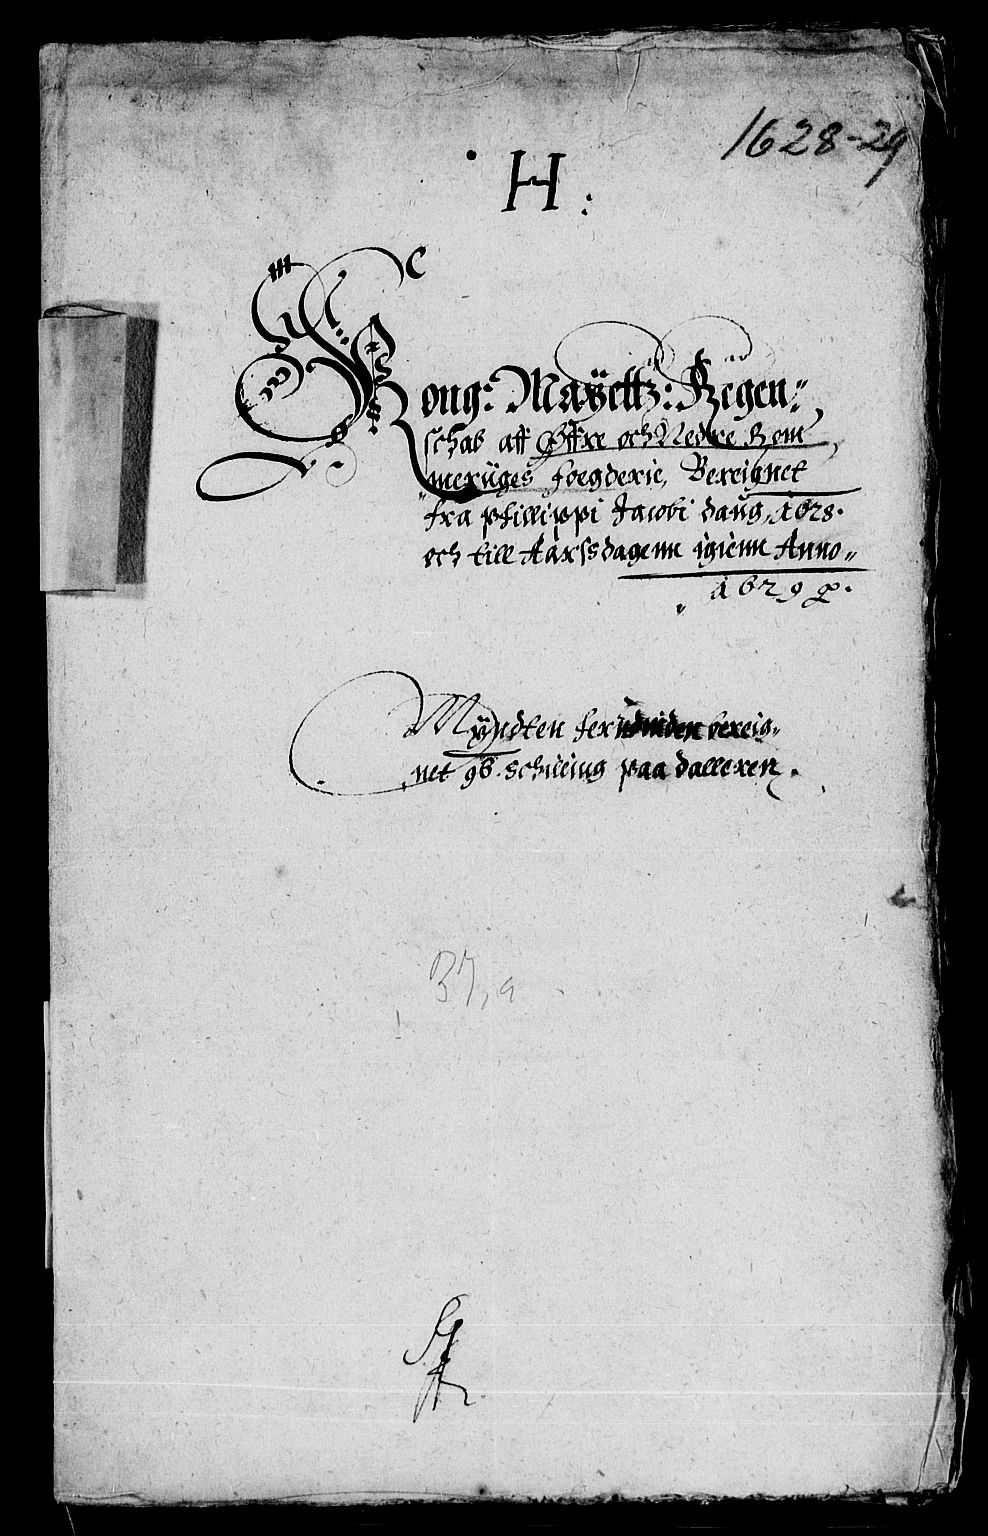 1628-29
H:
Kong: Mayettz: Regen„
schab aff Øffre och Nedre Rom
„merüges foegderie, Bereignet
fra phillippi Jacobi daug, 1628.
och till Aarssdagenn igienn Anno„
„ 1629
Myndten herudinden bereig„
net 96. schilling paa dalleren.
37, a